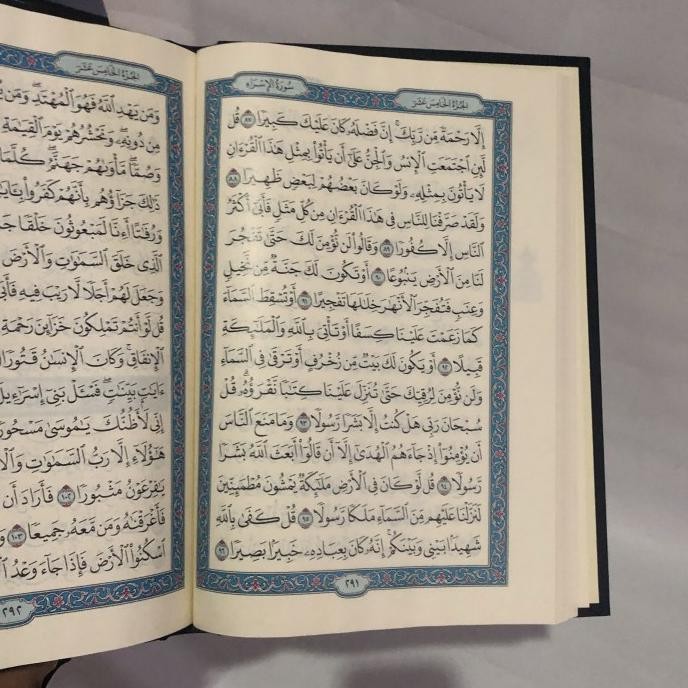 سُورَةُ الْإِسْرَاءِ
الجُزْءُ الخَامِسَ عَشَرَ
إِلَّا رَحْمَةً مِّن رَّبِّكَ ۚ إِنَّ فَضْلَهُ كَانَ عَلَيْكَ كَبِيرًا ٨٧ قُل
لَّئِنِ اجْتَمَعَتِ الْإِنسُ وَالْجِنُّ عَلَىٰ أَن يَأْتُوا بِمِثْلِ هَٰذَا الْقُرْءَانِ
لَا يَأْتُونَ بِمِثْلِهِ وَلَوْ كَانَ بَعْضُهُمْ لِبَعْضٍ ظَهِيرًا ٨٨
وَلَقَدْ صَرَّفْنَا لِلنَّاسِ فِي هَٰذَا الْقُرْءَانِ مِن كُلِّ مَثَلٍ فَأَبَىٰ أَكْثَرُ
النَّاسِ إِلَّا كُفُورًا ٨٩ وَقَالُوا لَن نُّؤْمِنَ لَكَ حَتَّىٰ تَفْجُرَ
لَنَا مِنَ الْأَرْضِ يَنبُوعًا ٩٠ أَوْ تَكُونَ لَكَ جَنَّةٌ مِّن نَّخِيلٍ
وَعِنَبٍ فَتُفَجِّرَ الْأَنْهَٰرَ خِلَٰلَهَا تَفْجِيرًا ٩١ أَوْ تُسْقِطَ السَّمَاءَ
كَمَا زَعَمْتَ عَلَيْنَا كِسَفًا أَوْ تَأْتِيَ بِاللَّهِ وَالْمَلَٰئِكَةِ
قَبِيلًا ٩٢ أَوْ يَكُونَ لَكَ بَيْتٌ مِّن زُخْرُفٍ أَوْ تَرْقَىٰ فِي السَّمَاءِ
وَلَن نُّؤْمِنَ لِرُقِيِّكَ حَتَّىٰ تُنَزِّلَ عَلَيْنَا كِتَٰبًا نَّقْرَؤُهُ ۗ قُلْ
سُبْحَانَ رَبِّي هَلْ كُنتُ إِلَّا بَشَرًا رَّسُولًا ٩٣ وَمَا مَنَعَ النَّاسَ
أَن يُؤْمِنُوا إِذْ جَاءَهُمُ الْهُدَىٰ إِلَّا أَن قَالُوا أَبَعَثَ اللَّهُ بَشَرًا
رَّسُولًا ٩٤ قُل لَّوْ كَانَ فِي الْأَرْضِ مَلَٰئِكَةٌ يَمْشُونَ مُطْمَئِنِّينَ
لَنَزَّلْنَا عَلَيْهِم مِّنَ السَّمَاءِ مَلَكًا رَّسُولًا ٩٥ قُلْ كَفَىٰ بِاللَّهِ
شَهِيدًا بَيْنِي وَبَيْنَكُمْ ۚ إِنَّهُ كَانَ بِعِبَادِهِ خَبِيرًا بَصِيرًا ٩٦
٢٩١
الجُزْءُ الخَامِسَ عَشَرَ
وَمَن يَهْدِ اللَّهُ فَهُوَ الْمُهْتَدِ ۖ وَمَن
مِن دُونِهِ ۖ وَنَحْشُرُهُمْ يَوْمَ الْقِيَٰمَةِ
وَصُمًّا ۖ مَّأْوَىٰهُمْ جَهَنَّمُ ۖ كُلَّمَا
ذَٰلِكَ جَزَاؤُهُم بِأَنَّهُمْ كَفَرُوا
وَرُفَٰتًا أَءِنَّا لَمَبْعُوثُونَ خَلْقًا
الَّذِي خَلَقَ السَّمَٰوَٰتِ وَالْأَرْضَ
وَجَعَلَ لَهُمْ أَجَلًا لَّا رَيْبَ فِيهِ
قُل لَّوْ أَنتُمْ تَمْلِكُونَ خَزَائِنَ رَحْمَةِ
الْإِنفَاقِ ۚ وَكَانَ الْإِنسَٰنُ قَتُورًا
ءَايَٰتٍ بَيِّنَٰتٍ ۖ فَسْـَٔلْ بَنِي إِسْرَٰءِيلَ
إِنِّي لَأَظُنُّكَ يَٰمُوسَىٰ مَسْحُورًا
هَٰؤُلَاءِ إِلَّا رَبُّ السَّمَٰوَٰتِ
يَٰفِرْعَوْنُ مَثْبُورًا ١٠٢ فَأَرَادَ أَن
فَأَغْرَقْنَٰهُ وَمَن مَّعَهُ جَمِيعًا ١٠٣
اسْكُنُوا الْأَرْضَ فَإِذَا جَاءَ وَعْدُ
٢٩٢